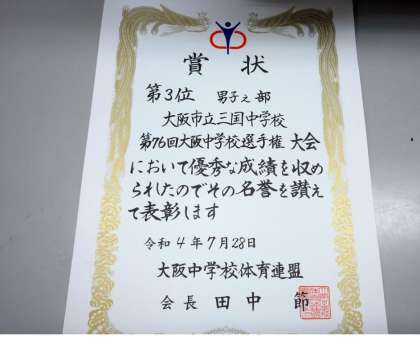 賞状
第3位 男子え部
大阪市立三国中学校
第76回大阪中学校選手権 大会
において優秀な成績を収め
られたのでその名誉を讃え
て表彰します
令和4年7月28日
大阪中学校体育連盟
会長 田中 節